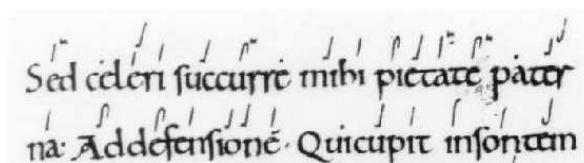 Sed celeri succurre mihi pietate pater
na: Ad defensionē. Qui cupit insontem